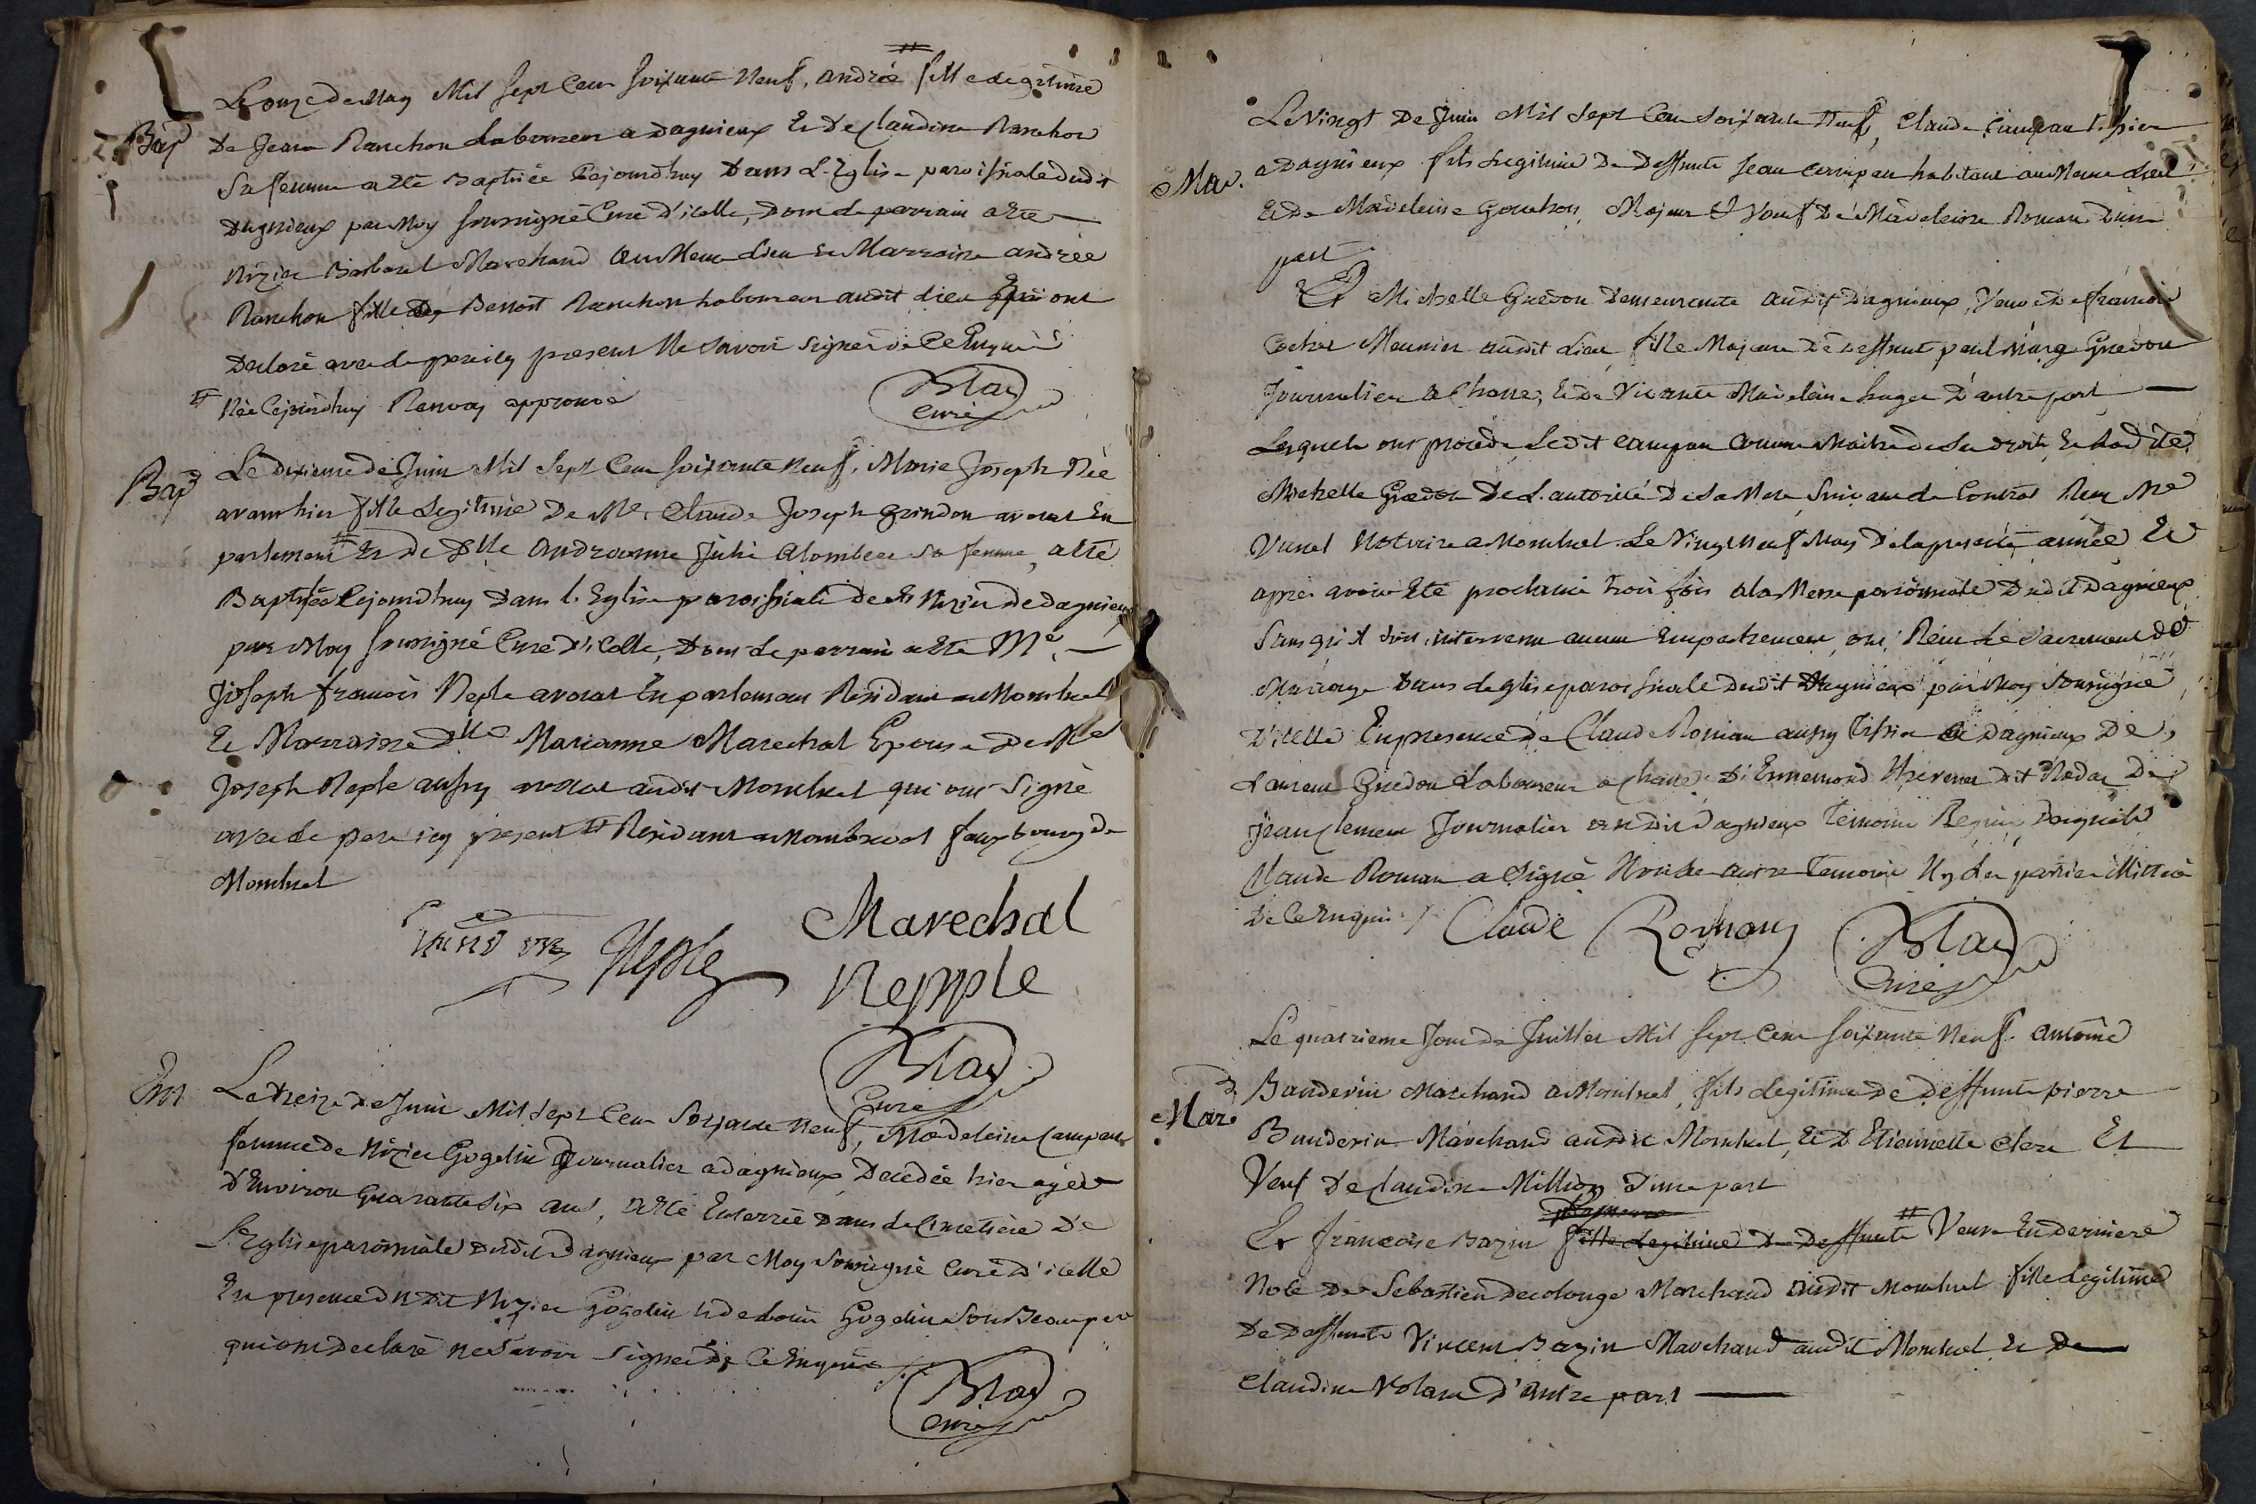 Le onze de May Mil Sept Cent Soixante Neuf, andrée # fille Legitime
Bap
De Jean Ranchon Laboureur a Dagnieux Et De Claudine Ranchon
Sa femme a Eté Baptisée Cejourdhuy Dans L'Eglise paroissiale dudit
Dagnieux par Moy Soussigné Curé D'icelle, Dont Le parrain a Eté
Nizier Barbaret Marchand au Meme Lieu Et Marraine andrée
Ranchon fille De Benoit Ranchon Laboureur audit Lieu Qui ont
Declaré avec Le pere icy present Ne Savoir Signer De Ce Enquis
# Née Cejourdhuy Renvoy approuvé
Blad
Curé
Bap
Le dixieme de Juin Mil Sept Cent Soixante Neuf, Marie Joseph Née
avanthier fille Legitime De Me. Claude Joseph Grindon avocat En
parlement # Et De Dlle Androanne Julie Alombert Sa femme, a Eté
Baptisée Cejourdhuy Dans L'Eglise paroissiale de St Nizier de Dagnieux
par Moy Soussigné Curé D'icelle, Dont Le parrain a Eté Me.
Joseph françois Neple avocat En parlement Résidant a Montluel
Et Marraine Dlle Marianne Marechal Epouse De Me
Joseph Neple aussy avocat audit Montluel qui ont Signé
avec Le pere icy present # Résidant a Montluel fauxbourg de
Montluel
Neple
Marechal
Nepple
Blad
Curé
Ent
Le treize de Juin Mil Sept Cent Soixante Neuf, Madeleine Campan
femme de Nizier Gogelin Journalier a Dagnieux Decedée hier agée
D'Environ Quarante Six ans, a Eté Enterrée Dans Le Cimetiere De
L'Eglise paroissiale Dudit Dagnieux par Moy Soussigné Curé D'icelle
En presence Dudit Nizier Gogelin Et de Louis Gogelin Son Beaupere
qui ont Declaré Ne Savoir Signer De Ce Enquis
Blad
Curé
Le Vingt De Juin Mil Sept Cent Soixante Neuf, Claude Campan tissier
Mar.
a Dagnieux fils Legitime De Deffunt Jean Campan habitant au Meme Lieu
Et De Madeleine Gonchon, Majeur & Veuf De Madeleine Roman D'une
part
Et Michelle Guedon Demeurante audit Dagnieux, Veuve De françois
Cochet Meunier audit Lieu fille Majeure De Deffunt paul Guedon
Journalier a Chane, Et De Vivante Madeleine D'autre part
Lesquels ont procédé, Ledit Campan Comme Maitre de Ses droits, Et Ladite
Michelle Guedon De L'autorité De Sa Mere, Suivant Le Contrat Reçu Me
Vanel Notaire a Montluel Le Vingt Neuf May De la presente année Et
après avoir Eté proclamé trois fois a la Messe paroissiale Dudit Dagnieux
Sans qu'il Soit intervenu aucun Empechement, ont Reçu Le Sacrement De
Mariage Dans L'eglise paroissiale Dudit Dagnieux par Moy Soussigné
D'icelle En presence De Claude Roman aussy tissier a Dagnieux De
Laurent Guedon Laboureur a Chane D'Ennemond Thevenet dit Nadar De
Jean Clement Journalier audit Dagnieux temoins Requis Desquels
Claude Roman a Signé Non les autres temoins Ny Les parties
De Ce Enquis /
Claude Roman
Blad
Curé
Le quatrieme Jour De Juillet Mil Sept Cent Soixante Neuf. antoine
Mar.
Banderin Marchand a Montluel, fils Legitime De Deffunt pierre
Banderin Marchand audit Montluel, Et D'Etiennette Clerc Et
Veuf De Claudine Million D'une part
Et françoise Bazin fille Legitime De Deffunt # Veuve En derniere
Note De Sebastien Decolonge Marchand audit Montluel fille Legitime
De Deffunt Vincent Bazin Marchand audit Montluel Et De
Claudine Volant D'autre part